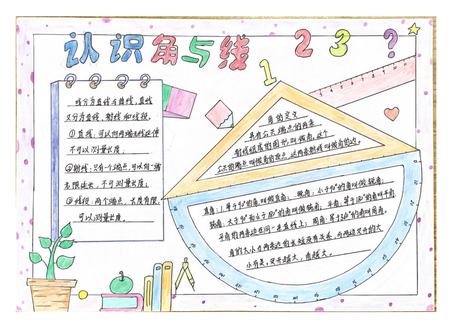 认识角与线
1 2 3 ?
线分为直线与曲线,直线
又分为直线、射线和线段。
①直线:可以向两端无线延伸
不可以测量长度。
②射线:只有个端点,可以向一端
无限延长,不可测量长度。
③线段:两个端点,长度有限,
可以测量长度。
角的定义
具有公共端点的两条
射线组成的图形叫做角,这个
公共的端点叫做角的顶点,这两条射线叫做角的边。
直角:等于90°的角叫做直角; 锐角:小于90°的角叫做锐角;
钝角:大于90°和小于180°的角叫做钝角; 平角:等于180°的角叫平角
平角的两条边在同一条直线上; 周角:等于360°的角叫周角,
角的大小与两条边的长短没有关系,与两边叉开的大
小有关,叉开越大,角越大。